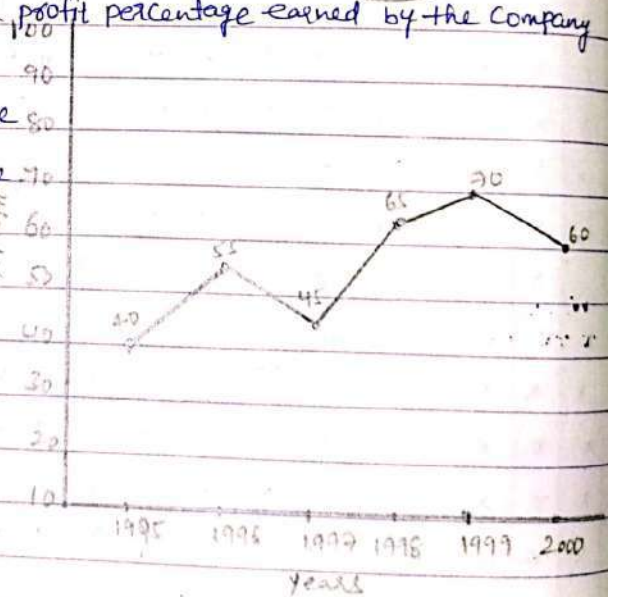 profit percentage earned by the Company
100
90
e 80
e 70
70
65
60
60
55
50
45
40
40
30
20
10
1995 1996 1997 1998 1999 2000
Years